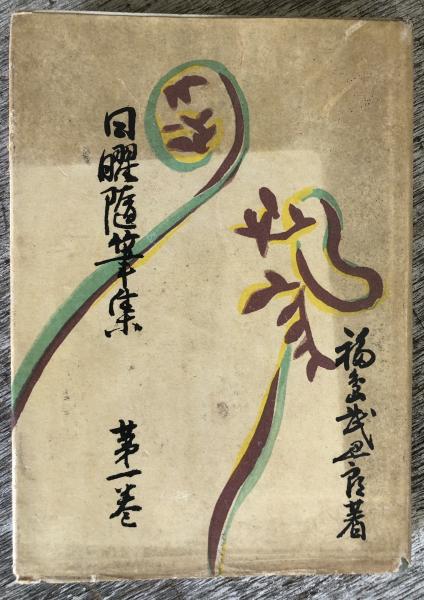 日曜隨筆集
第一巻
福島武四郎著